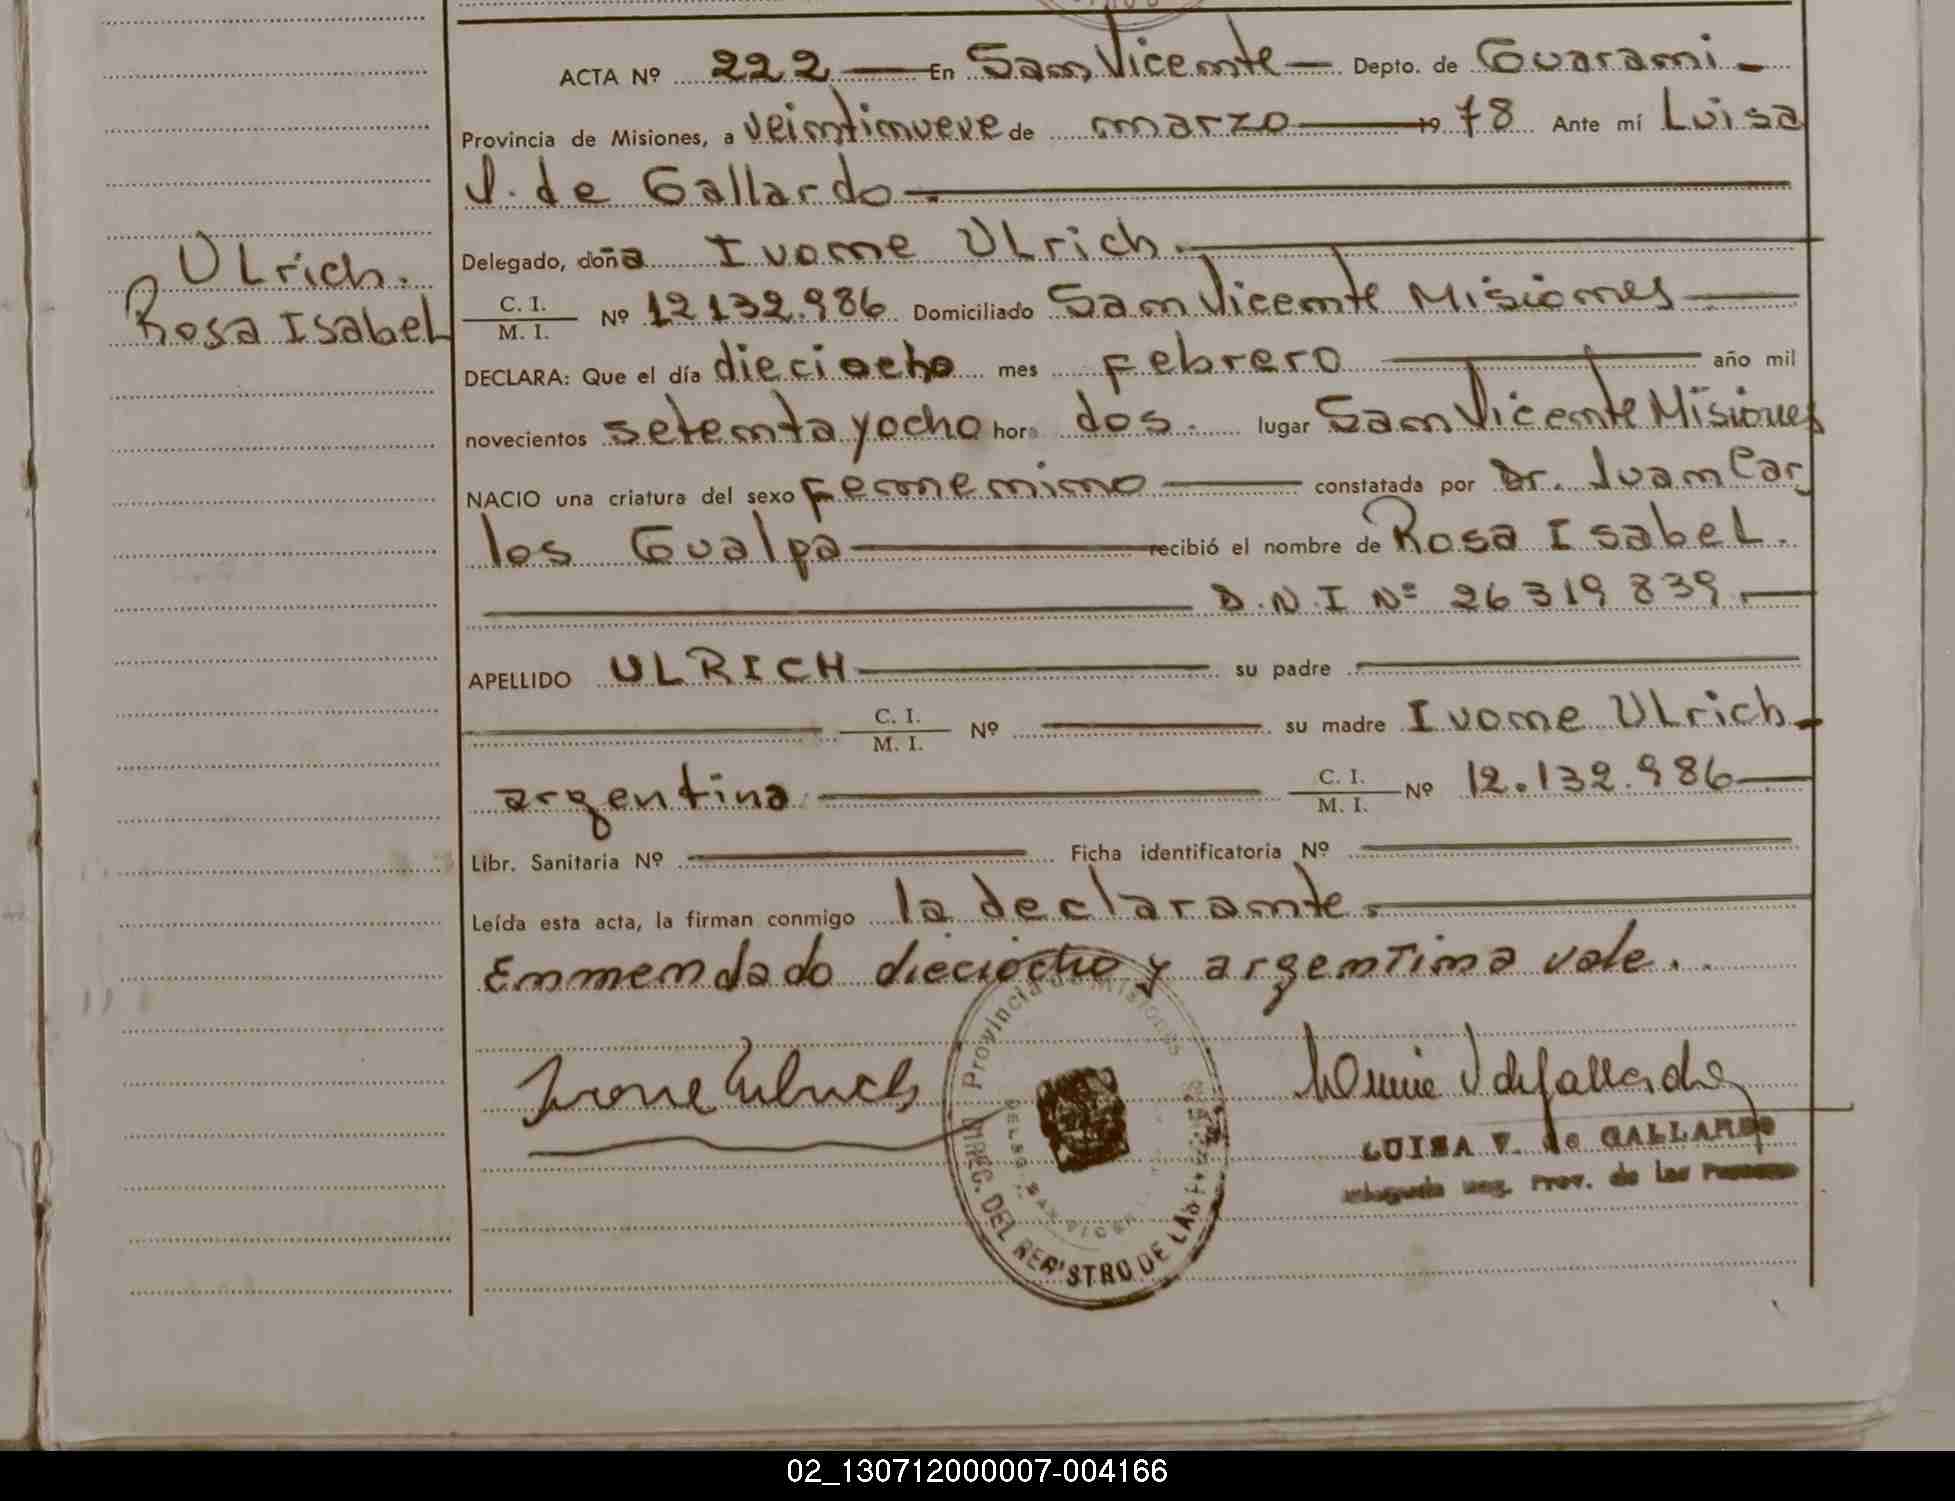 ACTA Nº 222 En San Vicente Depto. de Guarani
Provincia de Misiones, a veintinueve de marzo 1978 Ante mí Luisa
V. de Gallardo
Delegado, doña Ivone Ulrich
Ulrich
C. I.
M. I. Nº 12.132.986 Domiciliado San Vicente Misiones
Rosa Isabel
DECLARA: Que el día dieciocho mes Febrero año mil
novecientos setenta y ocho hora dos. lugar San Vicente Misiones
NACIO una criatura del sexo Femenino constatada por Dr. Juan Car
los Gualpa recibió el nombre de Rosa Isabel.
D.N.I Nº 26319839.
APELLIDO ULRICH su padre
C. I.
M. I. Nº su madre Ivone Ulrich
argentina C. I.
M. I. Nº 12.132.986
Libr. Sanitaria Nº Ficha identificatoria Nº
Leída esta acta, la firman conmigo la declarante.
Enmendado dieciocho y argentina vale.
Ivone Ulrich
Provincia de Misiones
DIREC. DEL REGISTRO DE LAS
LUISA V. de GALLARDO
Prov. de las
02_130712000007-004166